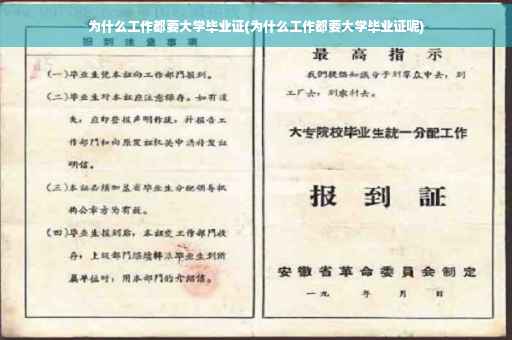 为什么工作都要大学毕业证(为什么工作都要大学毕业证呢)
报到注意事项
(一)毕业生凭本证向工作部门报到。
(二)毕业生对本证应注意保存。如有遗
失,应即登报声明作废,并报告工
作部门和向原发证机关申请补发证
明信。
(三)本证必须加盖省毕业生分配领导机
构公章方为有效。
(四)毕业生报到后,本证交工作部门收
存;上级部门继续转派毕业生到所
属单位时,用本部门的介绍信。
最高指示
我们提倡知识分子到群众中去,到
工厂去,到农村去。
大专院校毕业生统一分配工作
报到证
安徽省革命委员会制定
一九 年 月 日